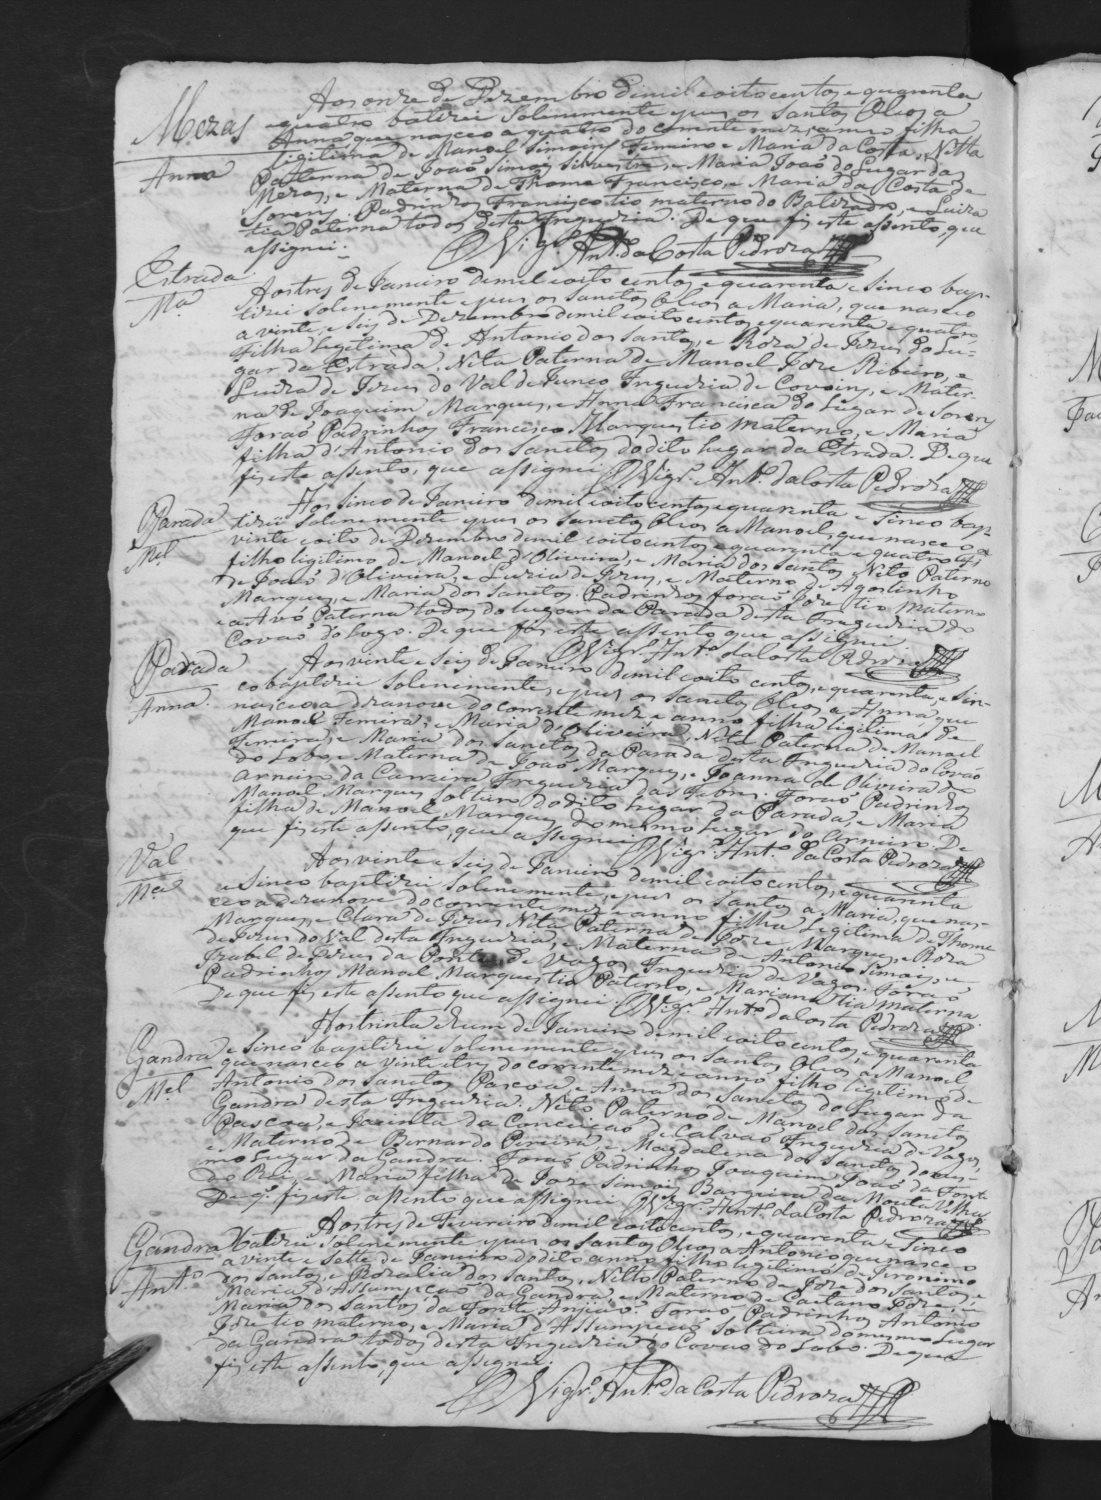 Mezas
Anna
Aos onze de Dezembro de mil e oito centos e quarenta
e quatro batizei solenemente e pus os Santos Oleos a
Anna que nasceo a quatro do corrente mez e anno filha
ligitima de Manoel Simoins Ferreiro e Maria da Costa, Netta
Paterna de Joaõ Simois Silvestre, e Maria Joaõ do Lugar das
Mezas, e Materna de Thome Francisco, e Maria da Costa de
Sorens Padrinhos Francisco tio materno do Batizado, e Luiza
tia Paterna todos desta Freguezia. De que fis este assento, que
assignei.
O Vigr.º Ant.º da Costa Pedroza
Estrada
M.ª
Aos tres de Janeiro de mil e oito centos e quarenta e sinco bap-
tizei solenemente e pus os sanctos Oleos a Maria, que nasceo
a vinte, e seis de Dezembro de mil e oito centos e quarenta e quatro
Filha Legitima de Antonio dos Santos, e Roza de Jezus do Lu-
gar da Estrada. Neta Paterna de Manoel Joze Ribeiro, e
Luiza de Jezus do Val de Junco Freguezia de Covoins, e Mater-
na de Joaquim Marques, e Anna Francisca do Lugar de Sorens
Foraõ Padrinhos Francisco Marques tio materno, e Maria
filha d'Antonio dos Sanctos do dito lugar da Estrada. De que
fis este assento, que assignei O Vigr.º Ant.º da Costa Pedroza
Parada
M.el
Aos sinco de Janeiro de mil e oito centos e quarenta e sinco bap-
tizei solenemente e pus os sanctos Oleos a Manoel, que nasceo a
vinte e oito de Dezembro de mil e oito centos e quarenta e quatro
filho ligitimo de Manoel d'Oliveira, e Maria dos Santos, Neto Paterno
de Joaõ d'Oliveira, e Luzia de Jezus, e Materno de Agostinho
Marques, e Maria dos Sanctos. Padrinhos foraõ Joze tio materno
e a Avó Paterna todos do lugar da Parada desta Freguezia do
Covaõ do Lobo. De que fis este assento que assignei
O Vigr.º Ant.º da Costa Pedroza
Parada
Anna
Aos vinte e seis de Janeiro de mil e oito centos, e quarenta, e sin-
co baptizei solenemente, e pus os sanctos Oleos a Anna que
nasceo a dezanove do corrente mez e anno filha ligitima de
Manoel Ferreira, e Maria d'Oliveira, Neta Paterna de Manoel
Ferreira, e Maria dos Sanctos da Parada desta Freguezia do Covaõ
do Lobo e Materna de Joaõ Marques, e Joanna de Oliveira do
Arneiro da Carreira Freguezia das Febres. Foraõ Padrinhos
Manoel Marques solteiro do dito lugar da Parada, e Maria
filha de Manoel Marques do mesmo Lugar do Arneiro. De
que fis este assento, que assignei O Vigr.º Ant.º da Costa Pedroza
Val
M.ª
Aos vinte e seis de Janeiro de mil e oito centos, e quarenta
e sinco baptizei solenemente, e pus os santos a Maria, que nas-
ceo a dezanove do corrente mez e anno filha Legitima de Thome
Marques, e Clara de Jezus, Neta Paterna de Joze Marques, e Roza
de Jezus do Val desta Freguezia, e Materna de Antonio Simois, e
Izabel de Jezus da Ponte de Vagos Freguezia de Vagos. Foraõ
Padrinhos Manoel Marques tio Paterno, e Mariana tia materna.
De que fis este assento que assignei O Vigr.º Ant.º da Costa Pedroza
Gandra
M.el
Aos trinta e hum de Janeiro de mil e oito centos, e quarenta
e sinco baptizei solenemente e pus os santos Oleos a Manoel
que nasceo a vinte e tres do corrente mez e anno filho ligitimo de
Antonio dos Sanctos Pascoa, e Anna dos Sanctos do Lugar da
Gandra desta Freguezia. Neto Paterno de Manoel dos Sanctos
Pascoa, e Jacinta da Conceicaõ de Calvaõ Freguezia de Vagos,
e Materno de Bernardo Pereira e Magdalena dos Sanctos do mes-
mo Lugar da Gandra. Foraõ Padrinhos Joaquim Joaõ da Fonte
do Rei, e Maria filha de Joze Simois Barreira da Mouta Velha
De q.e fis este assento que assignei O Vigr.º Ant.º da Costa Pedroza
Gandra
Ant.º
Aos tres de Fevereiro de mil e oito centos, e quarenta e sinco
batizei solenemente e pus os santos Oleos a Antonio que nasceo
a vinte e sette de Janeiro do dito anno filho legitimo de Jeronimo
dos Santos, e Rozalia dos Santos, Netto Paterno de Joze dos Santos, e
Maria d'Assumpcaõ da Gandra, e Materno de Caetano Joze, e
Maria dos Santos da Fonte Foraõ Padrinhos Antonio
Joze tio materno, e Maria d'Assumpcaõ solteira do mesmo Lugar
da Gandra todos desta Freguezia do Covaõ do Lobo. De que
fis este assento, que assignei.
O Vigr.º Ant.º da Costa Pedroza